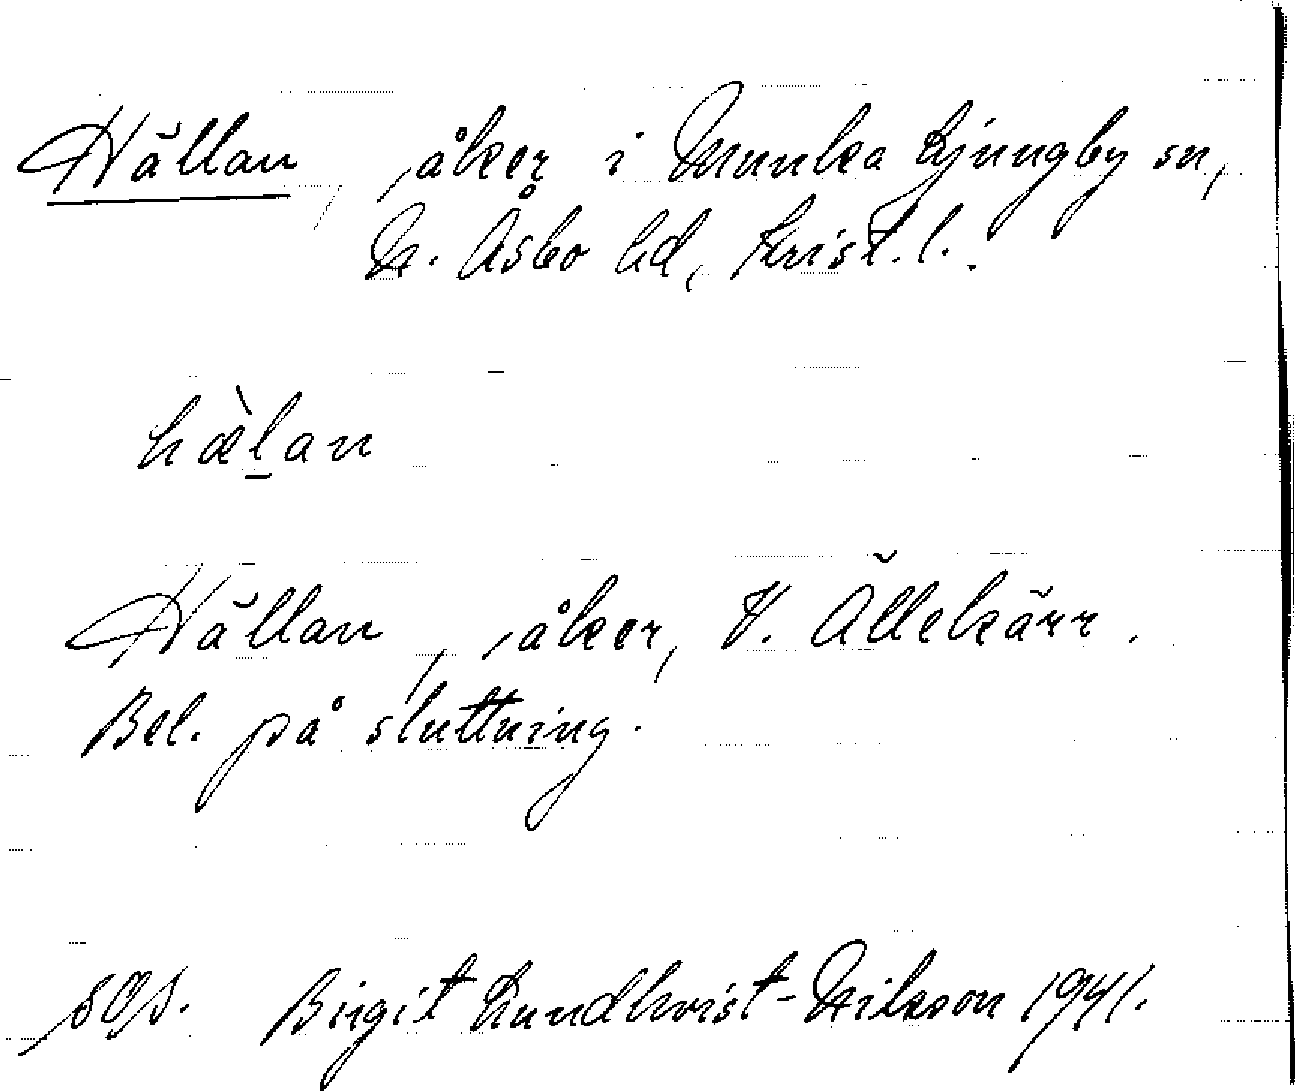 Hällan, åker i Munka Ljungby sn,
N. Åsbo hd, Krist. l.
hæ̀lan
Hällan, åker, V. Ällekärr.
Bel. på sluttning.
Birgit Lundkvist-Nilsson 1941.